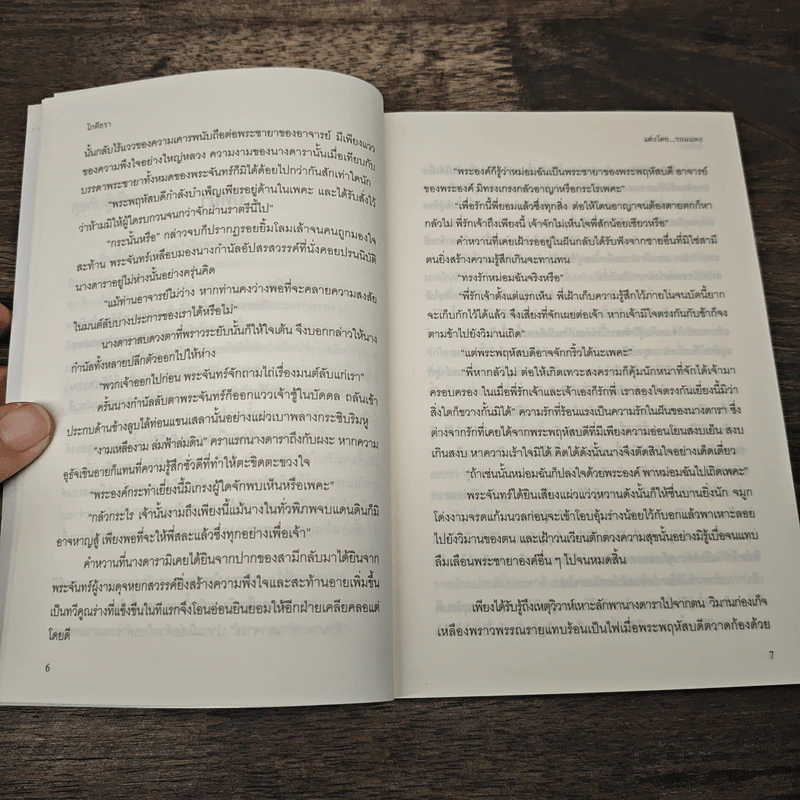 โภคีธรา
นั้นกลับไร้แววของความเคารพนับถือต่อพระชายาของอาจารย์ มีเพียงแวว
ของความพึงใจอย่างใหญ่หลวง ความงามของนางดารานั้นเมื่อเทียบกับ
บรรดาพระชายาทั้งหมดของพระจันทร์ก็มิได้ด้อยไปกว่ากันสักเท่าใดนัก
“พระพฤหัสบดีกำลังบำเพ็ญเพียรอยู่ด้านในเพคะ และได้รับสั่งไว้
ว่าห้ามมิให้ผู้ใดรบกวนจนกว่าจักผ่านราตรีนี้ไป”
“กระนั้นหรือ” กล่าวจบก็ปรากฏรอยยิ้มโลมเล้าจนคนถูกมองใจ
สะท้าน พระจันทร์เหลือบมองนางกำนัลอัปสรสวรรค์ที่นั่งคอยปรนนิบัติ
นางดาราอยู่ไม่ห่างนั้นอย่างครุ่นคิด
“แม้ท่านอาจารย์ไม่ว่าง หากท่านคงว่างพอที่จะคลายความสงสัย
ในมนต์ลับบางประการของเราได้หรือไม่”
นางดาราสบดวงตาที่พราวระยับนั้นก็ให้ใจเต้น จึงบอกกล่าวให้นาง
กำนัลทั้งหลายปลีกตัวออกไปให้ห่าง
“พวกเจ้าออกไปก่อน พระจันทร์จักถามไถ่เรื่องมนต์ลับแก่เรา”
ครั้นนางกำนัลลับตาพระจันทร์ก็ออกแววเจ้าชู้ในบัดดล ถลันเข้า
ประกบด้านข้างลูบไล้ท่อนแขนเสลานั้นอย่างแผ่วเบาพลางกระซิบริมหู
“งามเหลืองาม ล่มฟ้าล่มดิน” คราแรกนางดาราถึงกับผงะ หากความ
อุธัจเขินอายก็แทนที่ความรู้สึกชั่วดีที่ทำให้ตะขิดตะขวงใจ
“พระองค์กระทำเยี่ยงนี้มิเกรงผู้ใดจักพบเห็นหรือเพคะ”
“กลัวกระไร เจ้านั้นงามถึงเพียงนี้แม้นางในทั่วพิภพจบแดนดินก็มิ
อาจหาญสู้ เพียงพอที่จะให้พี่สละแล้วซึ่งทุกอย่างเพื่อเจ้า”
คำหวานที่นางดารามิเคยได้ยินจากปากของสามีกลับมาได้ยินจาก
พระจันทร์ผู้งามดุจหยกสวรรค์ยิ่งสร้างความพึงใจและสะท้านอายเพิ่มขึ้น
เป็นทวีคูณร่างที่แข็งขืนในทีแรกจึงโอนอ่อนยินยอมให้อีกฝ่ายเคลียคลอแต่
โดยดี
6
แต่งโดย...ขอมแพง
“พระองค์ก็รู้ว่าหม่อมฉันเป็นพระชายาของพระพฤหัสบดี อาจารย์
ของพระองค์ มิทรงเกรงกลัวอาญาหรือกระไรเพคะ”
“เพื่อรักนี้พี่ยอมแล้วซึ่งทุกสิ่ง ต่อให้โดนอาญาจนต้องตายตกก็หา
กลัวไม่ พี่รักเจ้าถึงเพียงนี้ เจ้าจักไม่เห็นใจพี่สักน้อยเชียวหรือ”
คำหวานที่เคยเฝ้ารออยู่ในฝันกลับได้รับฟังจากชายอื่นที่มิใช่สามี
ตนยิ่งสร้างความรู้สึกเกินจะทานทน
“ทรงรักหม่อมฉันจริงหรือ”
“พี่รักเจ้าตั้งแต่แรกเห็น พี่เฝ้าเก็บความรู้สึกไว้ภายในจนบัดนี้ยาก
จะเก็บกักไว้ได้แล้ว จึงเสี่ยงที่จักเผยต่อเจ้า หากเจ้ามีใจตรงกันกับข้าก็จง
ตามข้าไปยังวิมานเถิด”
“แต่พระพฤหัสบดีอาจจักกริ้วได้นะเพคะ”
“พี่หากลัวไม่ ต่อให้เกิดเทวะสงครามก็คุ้มนักหนาที่จักได้เจ้ามา
ครอบครอง ในเมื่อพี่รักเจ้าและเจ้าเองก็รักพี่ เราสองใจตรงกันเยี่ยงนี้มีว่า
สิ่งใดก็ขวางกั้นมิได้” ความรักที่ร้อนแรงเป็นความรักในฝันของนางดารา ซึ่ง
ต่างจากรักที่เคยได้จากพระพฤหัสบดีที่มีเพียงความอ่อนโยนสงบเย็น สงบ
เกินสงบ หาความเร้าใจมิได้ คิดได้ดังนั้นนางจึงตัดสินใจอย่างเด็ดเดี่ยว
“ถ้าเช่นนั้นหม่อมฉันก็ปลงใจด้วยพระองค์ พาหม่อมฉันไปเถิดเพคะ”
พระจันทร์ได้ยินเสียงแผ่วแว่วหวานดังนั้นก็ให้ชื่นบานยิ่งนัก จมูก
โด่งงามจรดแก้มนวลก่อนจะเข้าโอบอุ้มร่างน้อยไว้กับอกแล้วพาเหาะลอย
ไปยังวิมานของตน และเฝ้าวนเวียนตักตวงความสุขนั้นอย่างมิรู้เบื่อจนแทบ
ลืมเลือนพระชายาองค์อื่น ๆ ไปจนหมดสิ้น
เพียงได้รับรู้ถึงเหตุวิวาห์เหาะลักพานางดาราไปจากตน วิมานก่องเก็จ
เหลืองพราวพรรณรายแทบร้อนเป็นไฟเมื่อพระพฤหัสบดีตวาดก้องด้วย
7